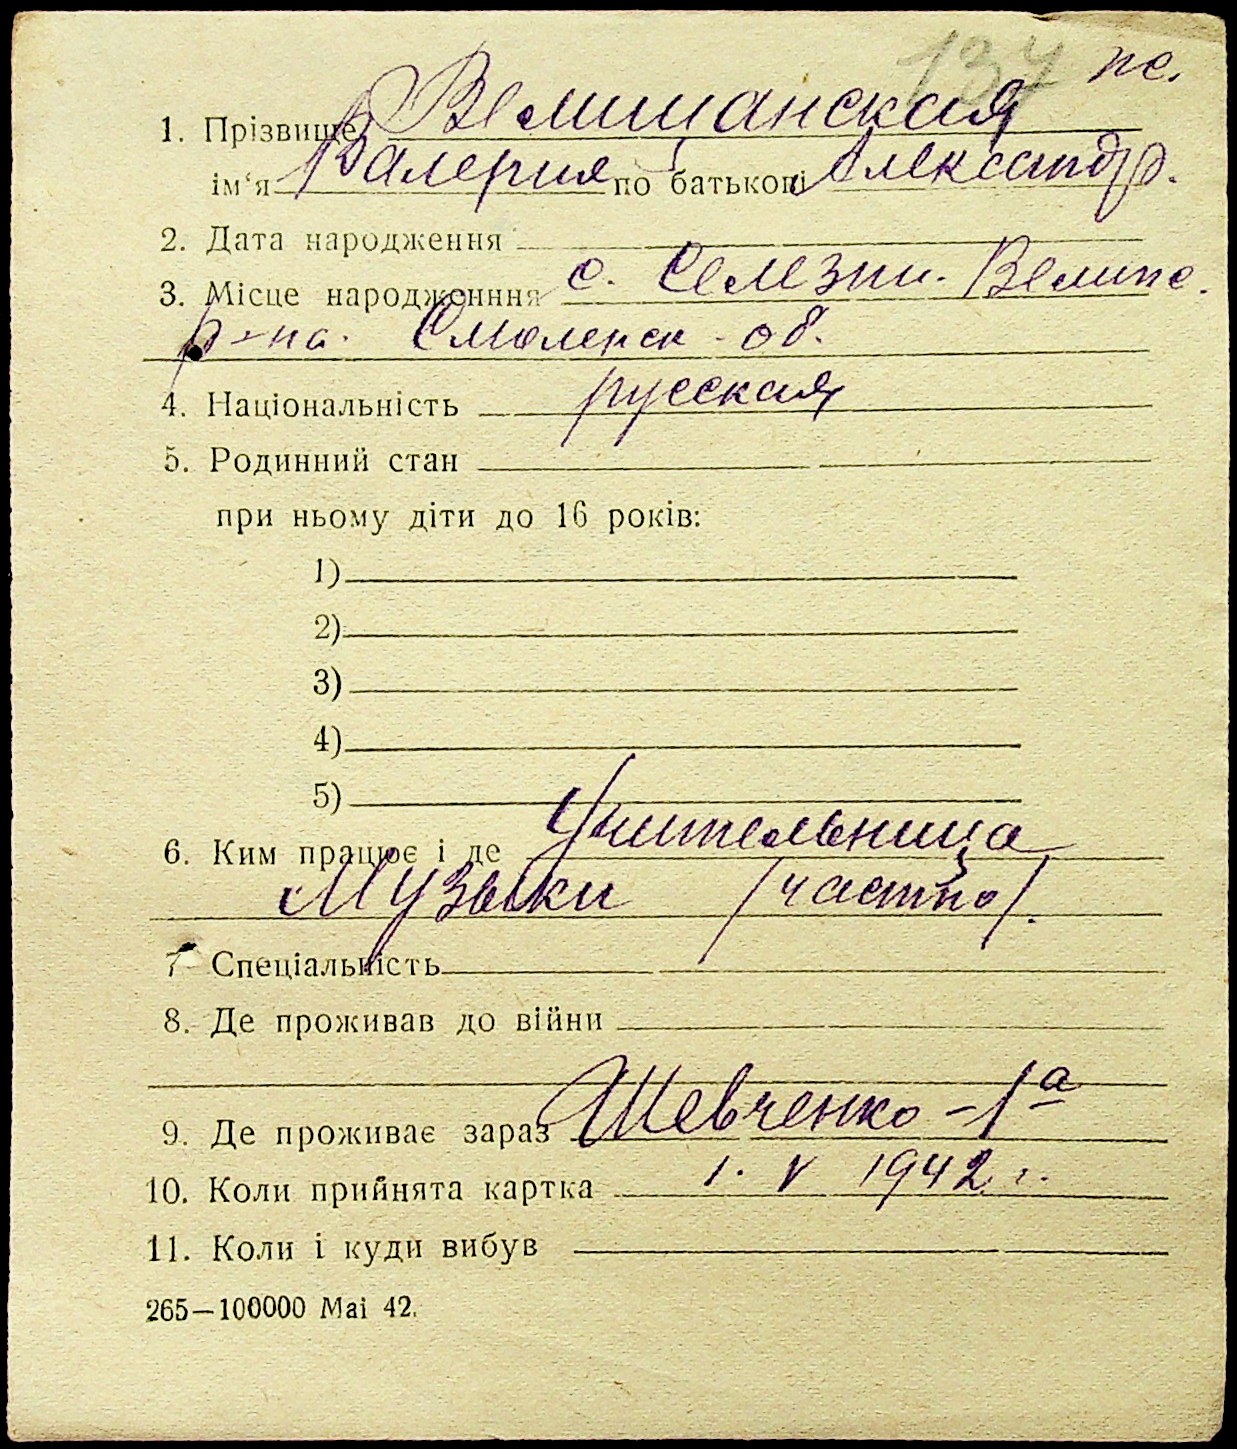 137 пс.
1. Прізвище Велишанская
ім'я Валерия по батькові Александр.
2. Дата народження
3. Місце народженння с. Селезни. Велипс.
р-на. Смоленск-об.
4. Національність русская
5. Родинний стан
при ньому діти до 16 років:
1)
2)
3)
4)
5)
6. Ким працює і де Учительница
Музыки (частно).
7 Спеціальність
8. Де проживав до війни
9. Де проживає зараз Шевченко-1а
10. Коли прийнята картка 1. V 1942 г.
11. Коли і куди вибув
265—100000 Маі 42.